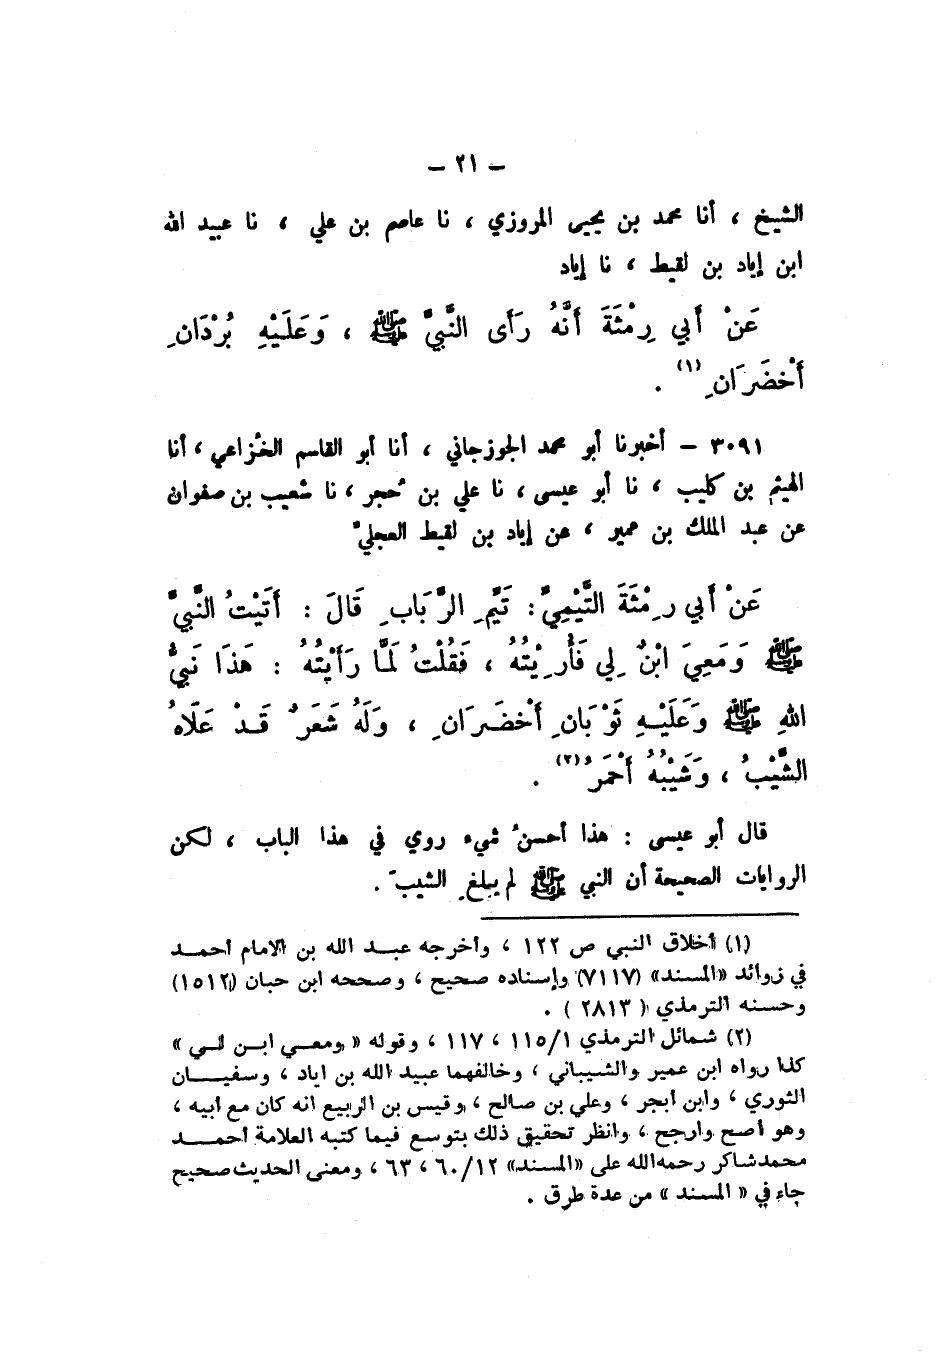 – ٢١ –
الشيخ ، أنا محمد بن يحيى المروزي ، نا عاصم بن علي ، نا عبيد الله
ابن إياد بن لقيط ، نا إياد
عَنْ أَبي رِمْثَةَ أَنَّهُ رَأَى النَّبيَّ ﷺ ، وَعَلَيْهِ بُرْدَانِ
أَخْضَرَانِ (١) .
٣٠٩١ – أخبرنا أبو محمد الجوزجاني ، أنا أبو القاسم الخُزاعي ، أنا
الهيثم بن كليب ، نا أبو عيسى ، نا علي بن حُجر ، نا شعيب بن صفوان
عن عبد الملك بن عمير ، عن إياد بن لقيط العجليّ
عَنْ أَبي رِمْثَةَ التَّيْمِيِّ : تَيْمِ الرَّبَابِ قَالَ : أَتَيْتُ النَّبيَّ
ﷺ وَمَعِيَ ابْنٌ لِي فَأُرِيْتُهُ ، فَقُلْتُ لَمَّا رَأَيْتُهُ : هَذَا نَبيُّ
اللهِ ﷺ وَعَلَيْهِ ثَوْبَانِ أَخْضَرَانِ ، وَلَهُ شَعَرٌ قَدْ عَلَاهُ
الشَّيْبُ ، وَشَيْبُهُ أَحْمَرُ (٢) .
قال أبو عيسى : هذا أحسنُ شيء روي في هذا الباب ، لكن
الروايات الصحيحة أن النبي ﷺ لم يبلغِ الشيبَ .
(١) أخلاق النبي ص ١٢٢ ، وأخرجه عبد الله بن الامام أحمد
في زوائد «المسند» (٧١١٧) وإسناده صحيح ، وصححه ابن حبان (١٥١٢)
وحسنه الترمذي ( ٢٨١٣ ) .
(٢) شمائل الترمذي ١/١١٥ ، ١١٧ ، وقوله « ومعي ابن لي »
كذا رواه ابن عمير والشيباني ، وخالفهما عبيد الله بن اياد ، وسفيان
الثوري ، وابن أبجر ، وعلي بن صالح ، وقيس بن الربيع انه كان مع أبيه ،
وهو أصح وأرجح ، وانظر تحقيق ذلك بتوسع فيما كتبه العلامة أحمد
محمد شاكر رحمه الله على «المسند» ١٢/٦٠ ، ٦٣ ، ومعنى الحديث صحيح
جاء في « المسند » من عدة طرق .